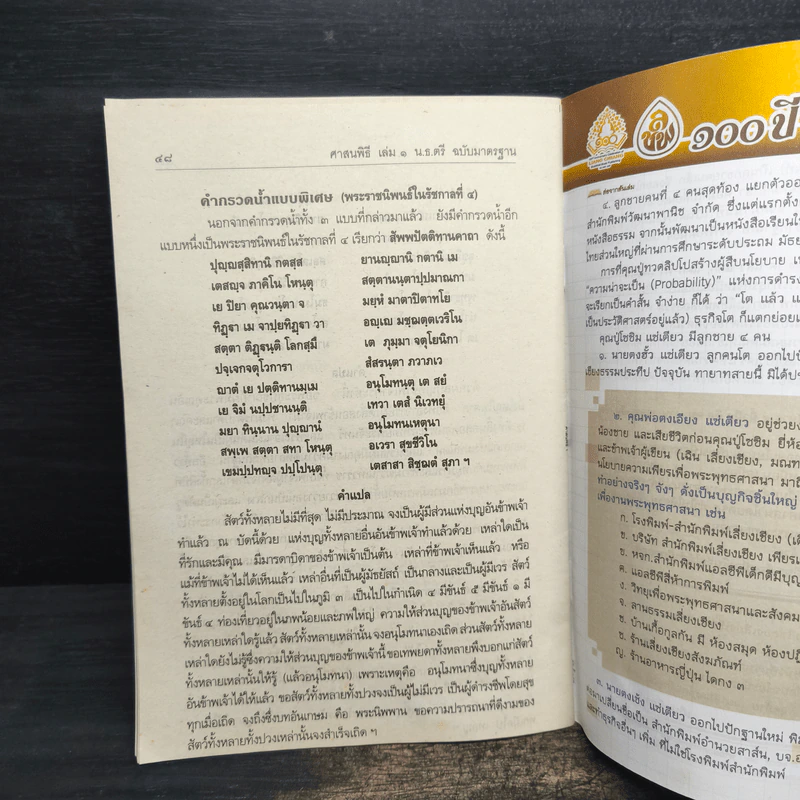 ๔๘ ศาสนพิธี เล่ม ๑ น.ธ.ตรี ฉบับมาตรฐาน
คำกรวดน้ำแบบพิเศษ (พระราชนิพนธ์ในรัชกาลที่ ๔)
นอกจากคำกรวดน้ำทั้ง ๓ แบบที่กล่าวมาแล้ว ยังมีคำกรวดน้ำอีก
แบบหนึ่งเป็นพระราชนิพนธ์ในรัชกาลที่ ๔ เรียกว่า สัพพปัตติทานคาถา ดังนี้
ปุญฺญสฺสิทานิ กตสฺส ยานญฺญานิ กตานิ เม
เตสญฺจ ภาคิโน โหนฺตุ สตฺตานนฺตาปฺปมาณกา
เย ปิยา คุณวนฺตา จ มยฺหํ มาตาปิตาทโย
ทิฏฺฐา เม จาปฺยทิฏฺฐา วา อญฺเญ มชฺฌตฺตเวริโน
สตฺตา ติฏฺฐนฺติ โลกสฺมึ เต ภุมฺมา จตุโยนิกา
ปญฺเจกจตุโวการา สํสรนฺตา ภวาภเว
ญาตํ เย ปตฺติทานมฺเม อนุโมทนฺตุ เต สยํ
เย จิมํ นปฺปชานนฺติ เทวา เตสํ นิเวทยุํ
มยา ทินฺนาน ปุญฺญานํ อนุโมทนเหตุนา
สพฺเพ สตฺตา สทา โหนฺตุ อเวรา สุขชีวิโน
เขมปฺปทญฺจ ปปฺโปนฺตุ เตสาสา สิชฺฌตํ สุภา ฯ
คำแปล
สัตว์ทั้งหลายไม่มีที่สุด ไม่มีประมาณ จงเป็นผู้มีส่วนแห่งบุญอันข้าพเจ้า
ทำแล้ว ณ บัดนี้ด้วย แห่งบุญทั้งหลายอื่นอันข้าพเจ้าทำแล้วด้วย เหล่าใดเป็น
ที่รักและมีคุณ มีมารดาบิดาของข้าพเจ้าเป็นต้น เหล่าที่ข้าพเจ้าเห็นแล้ว หรือ
แม้ที่ข้าพเจ้าไม่ได้เห็นแล้ว เหล่าอื่นที่เป็นผู้มัธยัสถ์ เป็นกลางและเป็นผู้มีเวร สัตว์
ทั้งหลายตั้งอยู่ในโลกเป็นไปในภูมิ ๓ เป็นไปในกำเนิด ๔ มีขันธ์ ๕ มีขันธ์ ๑ มี
ขันธ์ ๔ ท่องเที่ยวอยู่ในภพน้อยและภพใหญ่ ความให้ส่วนบุญของข้าพเจ้าอันสัตว์
ทั้งหลายเหล่าใดรู้แล้ว สัตว์ทั้งหลายเหล่านั้น จงอนุโมทนาเองเถิด ส่วนสัตว์ทั้งหลาย
เหล่าใดยังไม่รู้ซึ่งความให้ส่วนบุญของข้าพเจ้านี้ ขอเทพยดาทั้งหลายพึงบอกแก่สัตว์
ทั้งหลายเหล่านั้นให้รู้ (แล้วอนุโมทนา) เพราะเหตุคือ อนุโมทนาซึ่งบุญทั้งหลาย
อันข้าพเจ้าได้ให้แล้ว ขอสัตว์ทั้งหลายทั้งปวงจงเป็นผู้ไม่มีเวร เป็นผู้ดำรงชีพโดยสุข
ทุกเมื่อเถิด จงถึงซึ่งบทอันเกษม คือ พระนิพพาน ขอความปรารถนาที่ดีงามของ
สัตว์ทั้งหลายทั้งปวงเหล่านั้นจงสำเร็จเถิด ฯ
๑๐๐ ปี
ต่อจากต้นเล่ม
๔. ลูกชายคนที่ ๔ คนสุดท้อง แยกตัวออ
สำนักพิมพ์วัฒนาพานิช จำกัด ซึ่งแต่แรกตั้ง
หนังสือธรรม จากนั้นพัฒนาเป็นหนังสือเรียนใน
ไทยส่วนใหญ่ที่ผ่านการศึกษาระดับประถม มัธย
การที่คุณปู่ทวดลิปโปสร้างผู้สืบนโยบาย เ
"ความน่าจะเป็น (Probability)" แห่งการดำรง
จะเรียกเป็นคำสั้น จำง่าย ก็ได้ ว่า "โต แล้ว แ
เป็นประวัติศาสตร์อยู่แล้ว) ธุรกิจโต ก็แตกย่อยเ
คุณปู่โซซิม แซ่เตียว มีลูกชาย ๔ คน
๑. นายตงฮั้ว แซ่เตียว ลูกคนโต ออกไปปั
เชียงธรรมประทีป ปัจจุบัน ทายาทสายนี้ มิได้ปร
๒. คุณพ่อตงเอียง แซ่เตียว อยู่ช่วยง
น้องชาย และเสียชีวิตก่อนคุณปู่โซซิม ยี่ห้อ
และข้าพเจ้าผู้เขียน (เฉิน เลี่ยงเซียง, มณฑ
นโยบายความเพียรเพื่อพระพุทธศาสนา มาถึ
ทำอย่างจริงๆ จังๆ ดั่งเป็นบุญกิจชิ้นใหญ่
เพื่องานพระพุทธศาสนา เช่น
ก. โรงพิมพ์-สำนักพิมพ์เลี่ยงเซียง (เดิ
ข. บริษัท สำนักพิมพ์เลี่ยงเซียง เพียรเ
ข. หจก.สำนักพิมพ์แอลซีพีเด็กดีมีบุญ
ค. แอลซีพีสี่ห้าการพิมพ์
ง. วิทยุเพื่อพระพุทธศาสนาและสังคม
จ. ลานธรรมเลี่ยงเซียง
ช. บ้านเกื้อกูลกัน มี ห้องสมุด ห้องปฏิ
ซ. ร้านเลี่ยงเซียงสังฆภัณฑ์
ญ. ร้านอาหารญี่ปุ่น ไดกง ๓
๓. นายตงเจ้ง แซ่เตียว ออกไปปักฐานใหม่ พิม